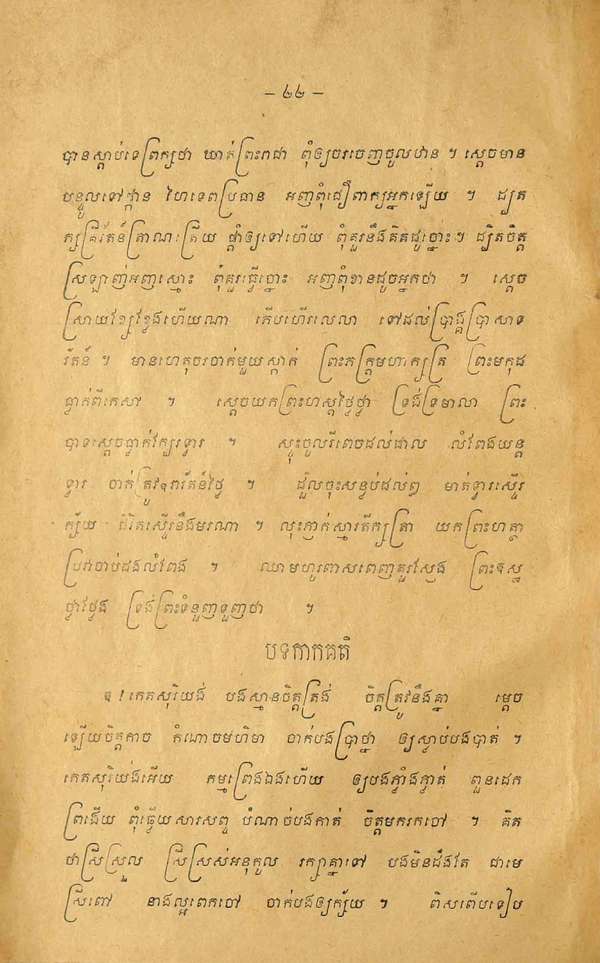 – ៤៤ –
បានស្តាប់ទេព្រឹក្សថា ឃាត់ព្រះរាជា ពុំឲ្យចរចេញចូលឋាន ។ ស្តេចមាន
បន្ទូលទៅថ្កាន ហៃទេពប្រធាន អញពុំជឿពាក្យអ្នកឡើយ ។ ដ្បិត
ក្សត្រីរ័តន៍ត្រាណត្រើយ ផ្តាំឲ្យទៅហើយ ពុំគួរនឹងគិតដូច្នោះ ។ ដ្បិតចិត្ត
ស្រឡាញ់អញស្មោះ ពុំគួរធ្វើច្នោះ អញពុំខានដូចអ្នកថា ។ ស្តេច
ស្រាយខ្សែខ្វែងហើយណា តើបហើរលេលា ទៅដល់ប្រាង្គប្រាសាទ
រ័តន៍ ។ មានហេតុចរចាក់មួយស្កាត់ ព្រះភក្ត្រមហាក្សត្រ ព្រះមកុដ
ធ្លាក់ពីកេសា ។ ស្តេចយកព្រះហស្តថ្លៃថ្លា ទ្រង់ទ្រមាលា ព្រះ
បាទស្តេចធ្លាក់ក្បែរទ្វារ ។ ស្ទុះចូលរំពេចដល់ជាល លំពែងយន្ត
ទ្វារ ចាក់ត្រូវឧរារ័តន៍ថ្លៃ ។ ដួលចុះសន្ធប់ដល់ឰ មាត់ទ្វារស្ទើរ
ក្ស័យ ជីវិតស្ទើរនឹងមរណា ។ លុះភ្ញាក់ស្មារតីក្សត្រា យកព្រះហត្ថា
ប្រវាចាប់ដងលំពែង ។ ឈាមហូរពាសពេញគួរស្ញែង ព្រះឧស្ន
ថ្លាថ្លែង ទ្រង់ព្រះទំនួញទួញថា ។
បទកាកគតិ
ឱ! កេតសុរិយង់ បងស្មានចិត្តត្រង់ ចិត្តត្រូវនឹងគ្នា ម្តេច
ឡើយចិត្តកាច កំណាចមហិមា ចាក់បងប្រាថ្នា ឲ្យស្លាប់បងបាត់ ។
កេតសុរិយង់អើយ កម្មព្រេងឯងហើយ ឲ្យបងភ្លាំងភ្លាត់ ពួនដេក
ព្រងើយ ពុំធ្វើយសារសព្ទ បំណាច់បងកាត់ ចិត្តមករកចៅ ។ គិត
ថាស្រីស្រួល ស្រីស្រស់អនុកូល រក្សាគ្នាទៅ បងមិនដឹងតែ ជាមេ
ស្រីពៅ នាងល្អពេកចៅ ចាក់បងឲ្យក្ស័យ ។ ពិសពើបទៀប